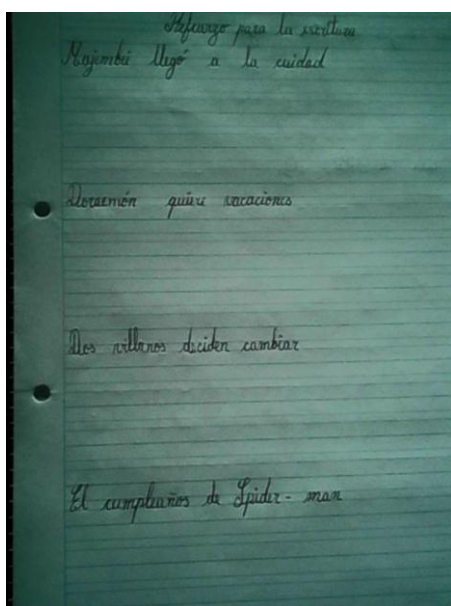 Refuerzo para la escritura
Majimbú llegó a la cuidad
Doraemón quiere vacaciones
Dos villanos deciden cambiar
El cumpleaños de Spider-man